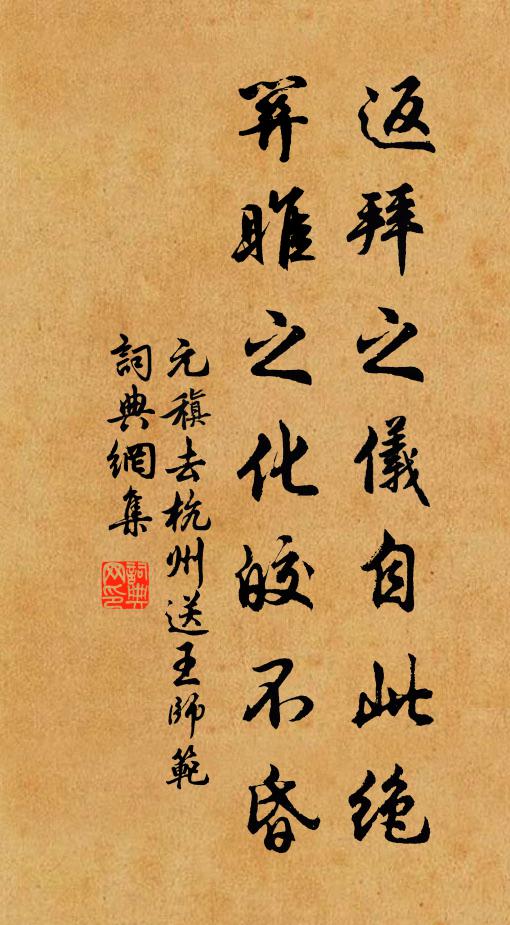 返拜之儀自此绝
關睢之化皎不昏
元稹去杭州送王師範
詞典網集
詞典网印